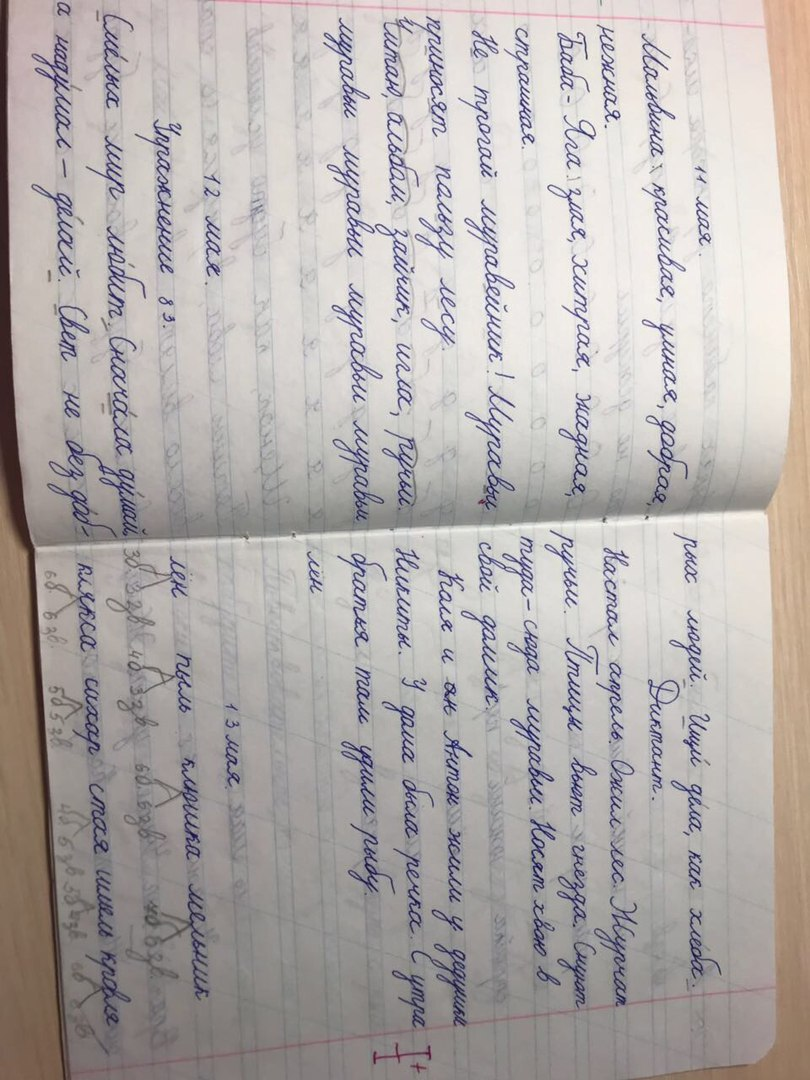 11 мая.
Мальвина красивая, умная, добрая,
нежная.
Баба-Яга злая, хитрая, жадная,
страшная.
Не трогай муравейник! Муравьи
приносят пользу лесу.
Читал, альбом, зайчик, игла,
муравьи муравьи муравьи муравьи
12 мая.
Упражнение 83.
Смелых мир любит. Сначала думай,
а надумал – делай. Свет не без доб-
рых людей. Ищи дела, как хлеба.
Диктант.
Настал апрель. Ожил лес. Журчат
ручьи. Птицы вьют гнёзда. Снуют
туда-сюда муравьи. Носят хвою в
свой домик.
Коля и он Антон жили у дедушки
Никиты. У дома была речка. С утра
братья там удили рыбу.
лён
I+
13 мая
лён пыль клюшка мельник
3б 3зв 4б 3зв 6б 6зв
клякса сахар стая шмель кровля
6б 6зв 5б 5зв 4б 5зв